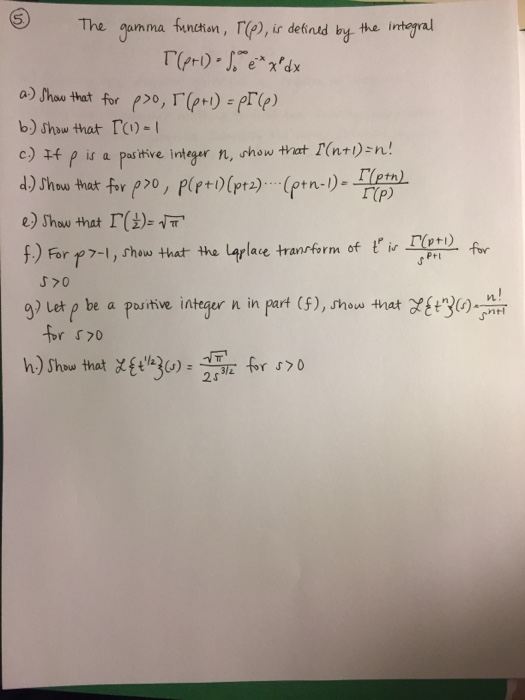 ⑤ The gamma function, Γ(p), is defined by the integral
Γ(p+1) = ∫₀^∞ e^-x x^p dx
a.) Show that for p>0, Γ(p+1) = pΓ(p)
b.) Show that Γ(1) = 1
c.) If p is a positive integer n, show that Γ(n+1)=n!
d.) Show that for p>0, p(p+1)(p+2)····(p+n-1) = Γ(p+n)/Γ(p)
e.) Show that Γ(1/2) = √π
f.) For p>-1, show that the Laplace transform of t^p is Γ(p+1)/s^(p+1) for
s>0
g.) Let p be a positive integer n in part (f), show that ℒ{t^n}(s) = n!/s^(n+1)
for s>0
h.) Show that ℒ{t^(1/2)}(s) = √π/(2s^(3/2)) for s>0